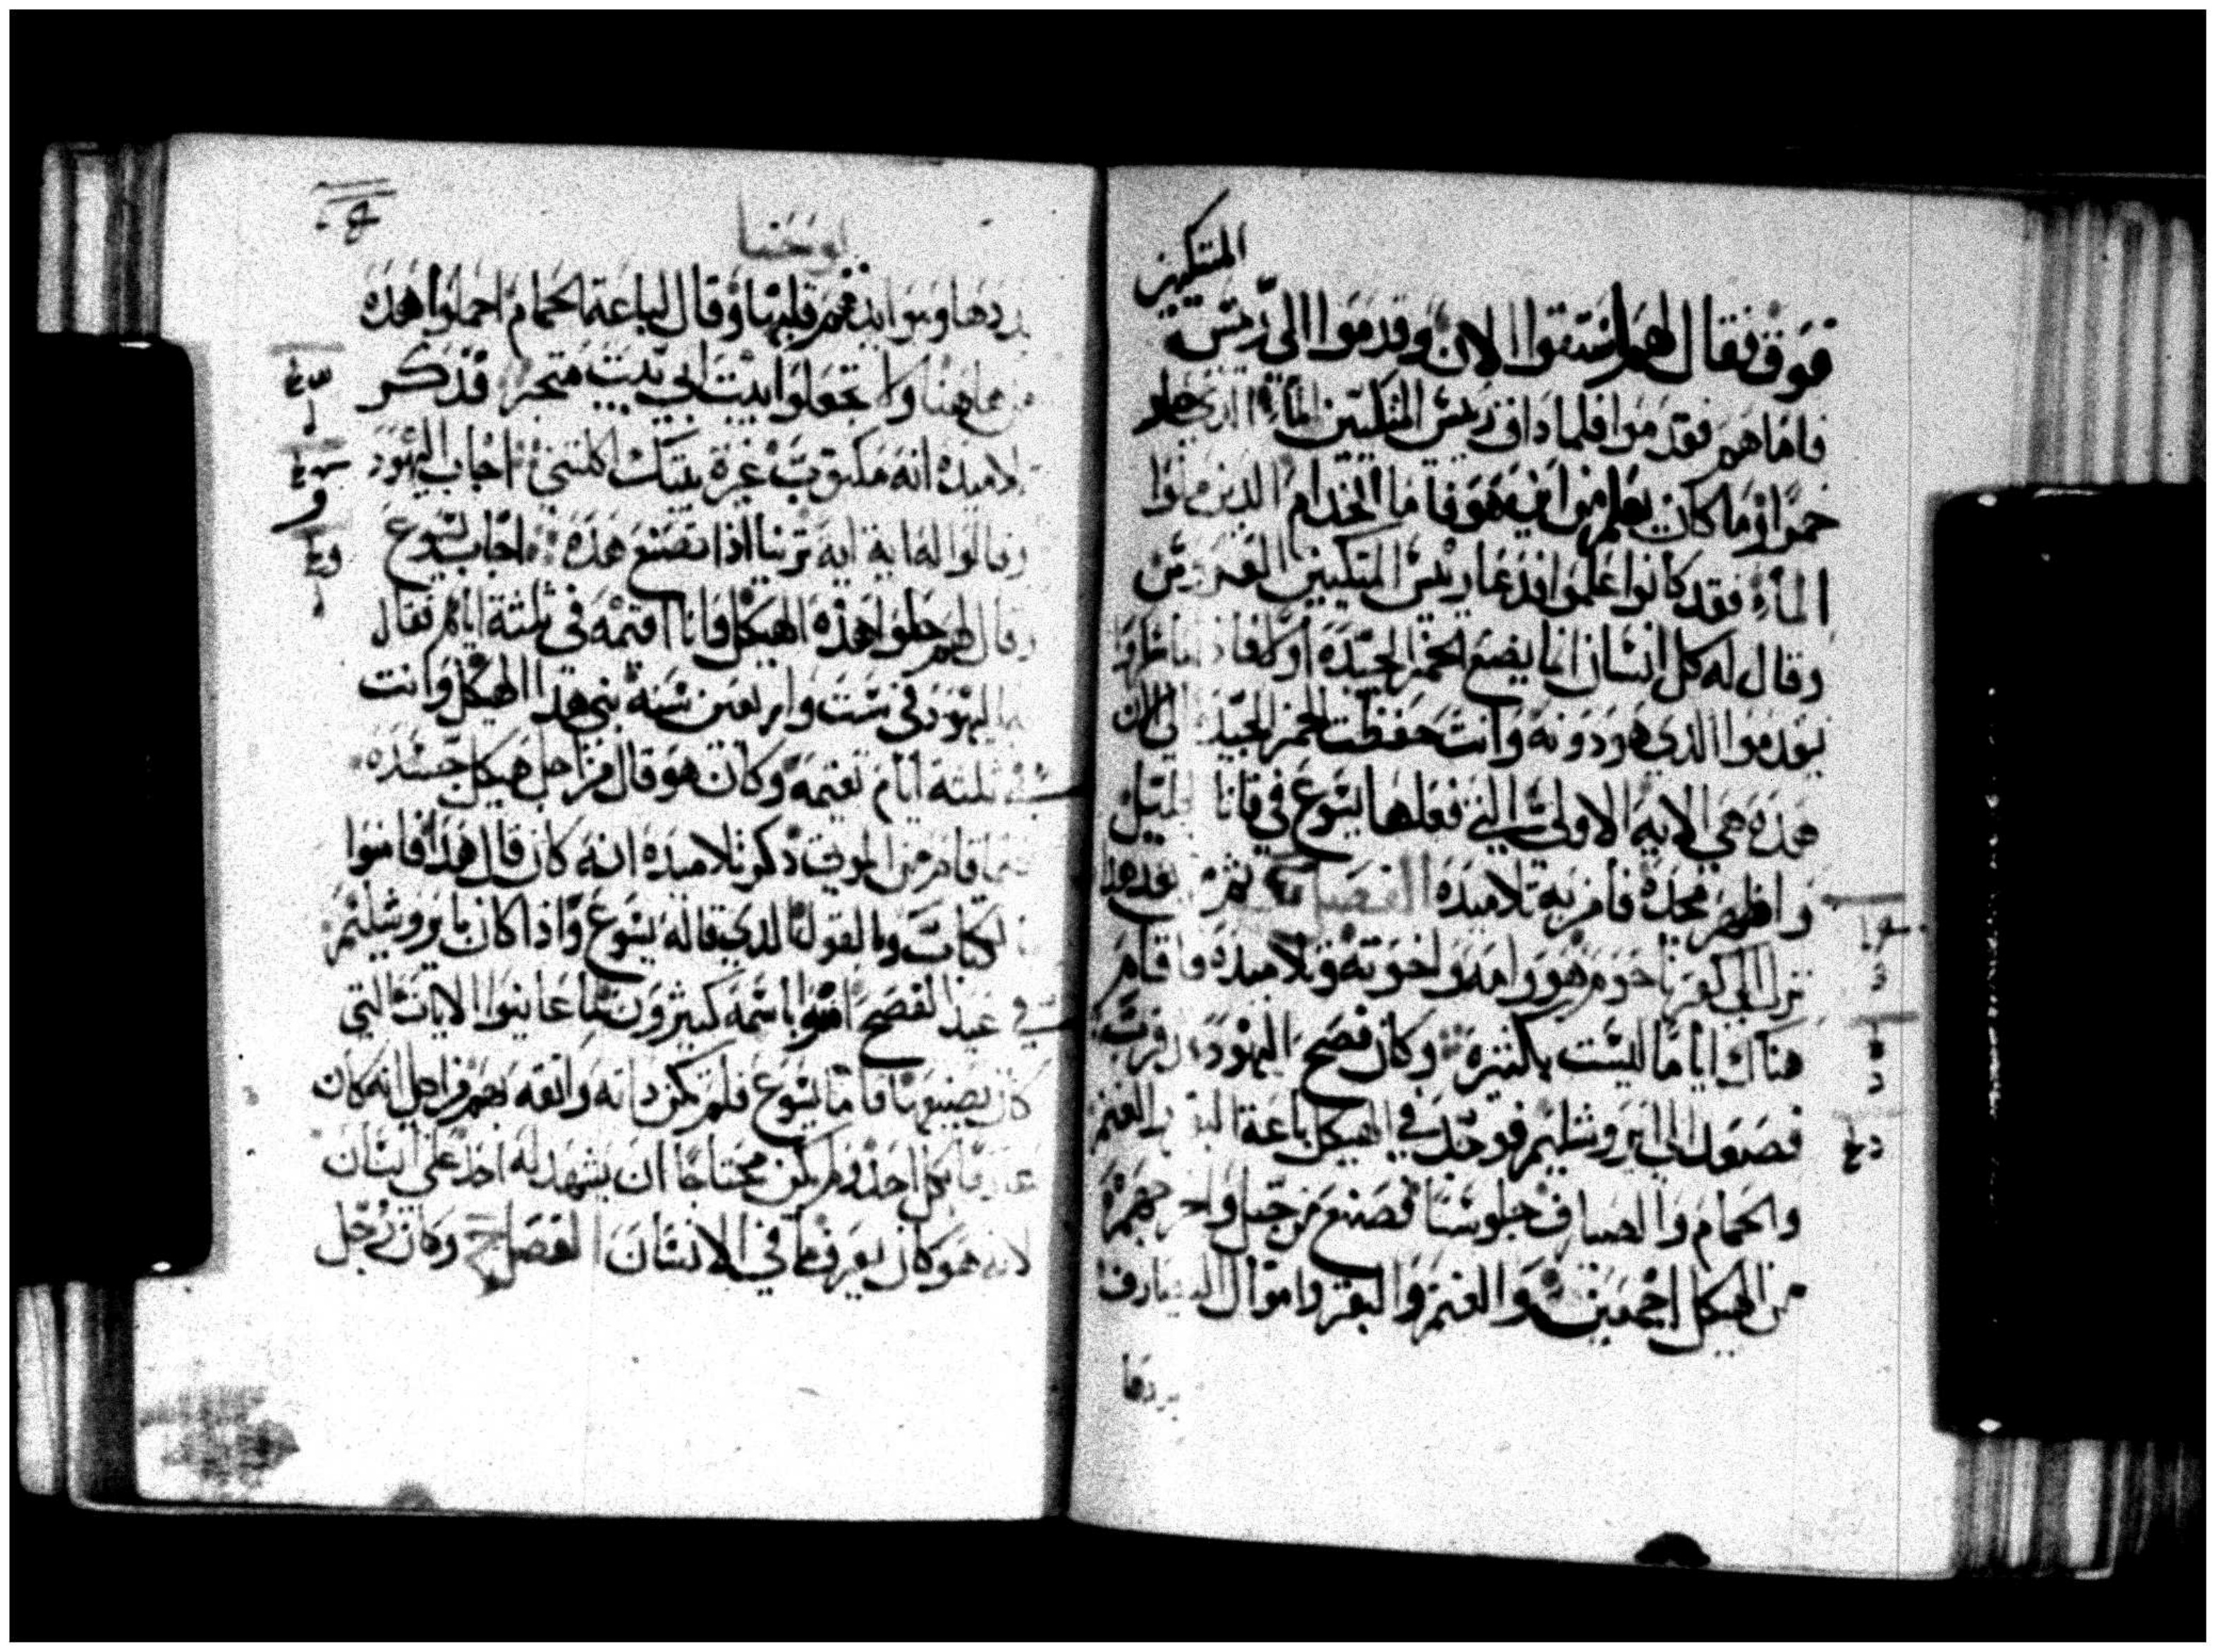 المتكيين
فوق فقال لهم استقوا الان وقدموا الي رييس
فاما هم فقدموا فلما داق رييس المتكيين الماء الدي حار
خمرا وما كان يعلم من اين هو فاما الخدام الذين ملوا
الماء فقد كانوا علموا فدعا رييس المتكيين العريس
وقال له كل انسان انما يضع الخمر الجيده اولا فاذا
يقدموا الدي هو دونه وانت حفظت الخمر الجيد الي الان
هده هي الايه الاولي التي فعلها يسوع في قانا الجليل
واظهر مجده فامن به تلاميده الفصل ثم بعد هدا
نزل الي كفرناحوم هو وامه واخوته وتلاميده واقام
هناك اياما ليست بكثيره وكان فصح اليهود قد قرب
فصعد الي ايروشليم فوجد في الهيكل باعة البقر والغنم
والحمام والصيارف جلوسا فصنع من حبل واخرجهم
من الهيكل اجمعين والغنم والبقر واموال الصيارف
بددها
يوحنا
بددها وموايدهم قلبها وقال لباعة الحمام احملوا هده
من هاهنا ولا تجعلوا بيت ابي بيت متجر فذكر
تلاميده انه مكتوب غيرة بيتك اكلتني اجاب اليهود
وقالوا له اية ايه ترينا اذا تصنع هذه اجاب يسوع
وقال لهم حلوا هذه الهيكل وانا اقيمه في ثلثة ايام فقال
اليهود في ست واربعين سنة بني هدا الهيكل وانت
في ثلثة ايام تقيمه وكان هو قال من اجل هيكل جسده
فلما قام من الموت ذكر تلاميده انه كان قال هدا فامنوا
بالكتاب وبالقول الدي قاله يسوع واذا كان بايروشليم
في عيد الفصح امنوا باسمه كثيرون لما عاينوا الايات التي
كان يصنعها فاما يسوع فلم يمكن داته واثقه بهم من اجل انه كان
عارفا بكل احد ولم يكن محتاجا ان يشهد له احد علي انسان
لانه هو كان يعرف ما في الانسان الفصل وكان رجل